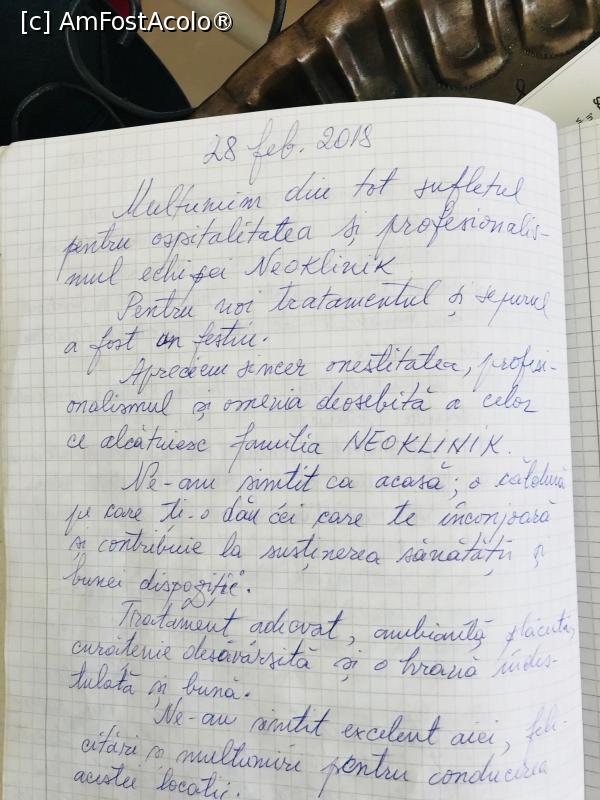 [c] AmFostAcolo®
28 feb. 2018
Mulțumim din tot sufletul
pentru ospitalitatea și profesionalis-
mul echipei NeoKlinik
Pentru noi tratamentul și sejurul
a fost un festin.
Apreciem sincer onestitatea, profesi-
onalismul și omenia deosebită a celor
ce alcătuiesc familia NEOKLINIK.
Ne-am simtit ca acasă; o căldură
pe care ți-o dău cei care te înconjoară
și contribuie la susținerea sănătății și
bunei dispoziții.
Tratament adecvat, ambianță plăcută,
curățenie desăvârșită și o hrană îndes-
tulată și bună.
Ne-am simtit excelent aici, feli-
citări și mulțumiri pentru conducerea
acestei locații.